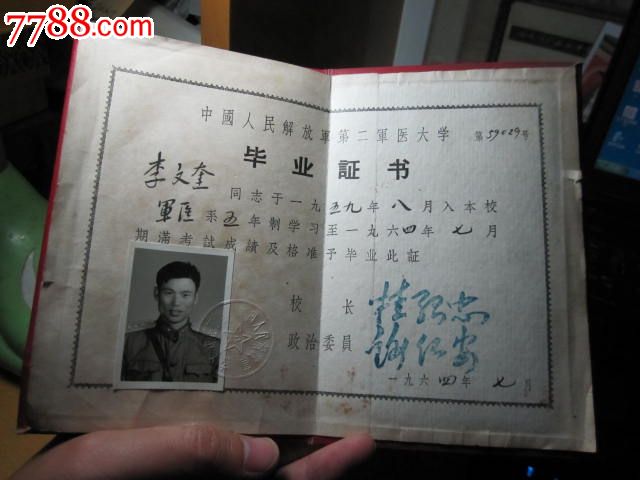 7788.com
中國人民解放軍第二軍医大学 第59029号
毕业証书
李文奎同志于一九五九年八月入本校
軍医系五年制学习至一九六四年七月
期滿考試成績及格准予毕业此証
校长
政治委員
一九六四年七月